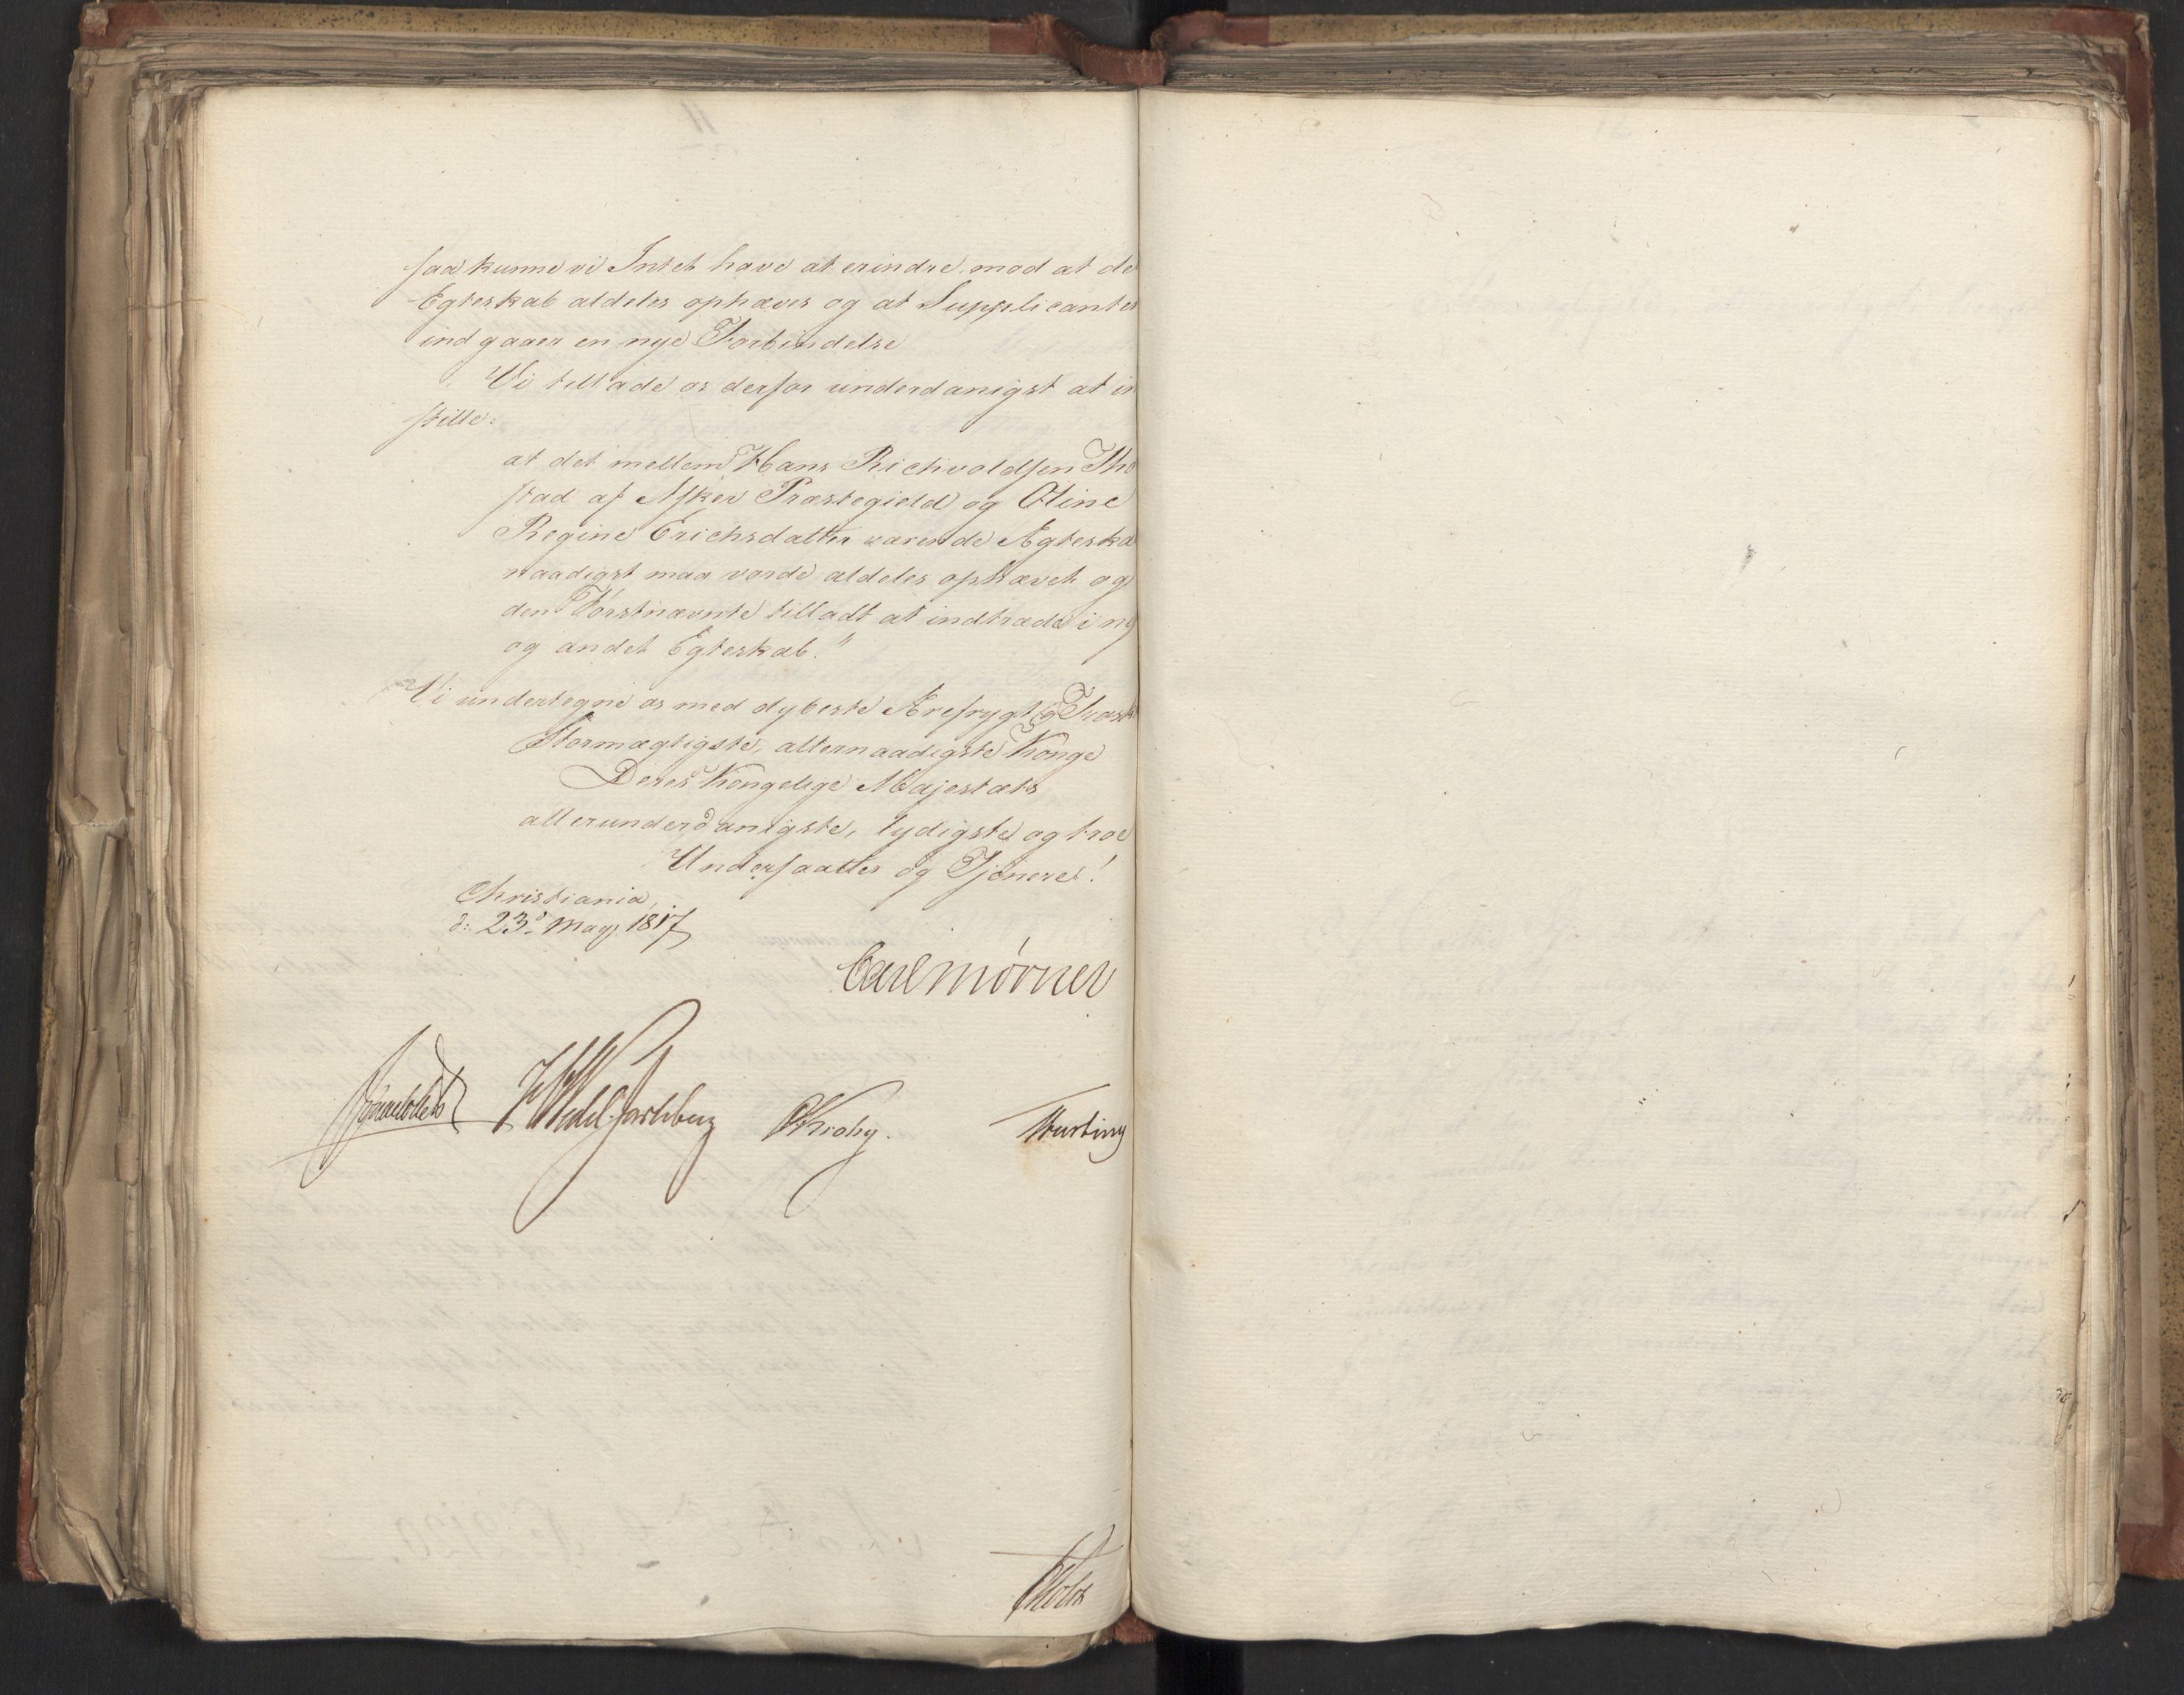 saa kunne vi Intet have at erindre mod at de
Egteskab aldeles ophæves og at Supplicanten
indgaaer en nye Forbindelse
Vi tillade os derfor underdanigst at in
stille:
at det mellem Hans Richvoldsen Tho
stad af Asker Præstegield og Oline
Regine Erichsdatter værende Ægteska
naadigst maa vorde aldeles ophævet og
den Førstnævnte tilladt at indtræde i ny
og andet Egteskab."
Vi undertegne os med dybeste Ærefrygt og Trosk
Stormægtigste, allernaadigste Konge
Deres Kongelige Majestæts
allerunderdanigste, lydigste og troe
Undersaatter og Tjenere!
Christiania,
d: 23d May 1817
Carl Mörner
Sommelhielm HWedel Jarlsberg CKrohg. Motzfeldt
Holst